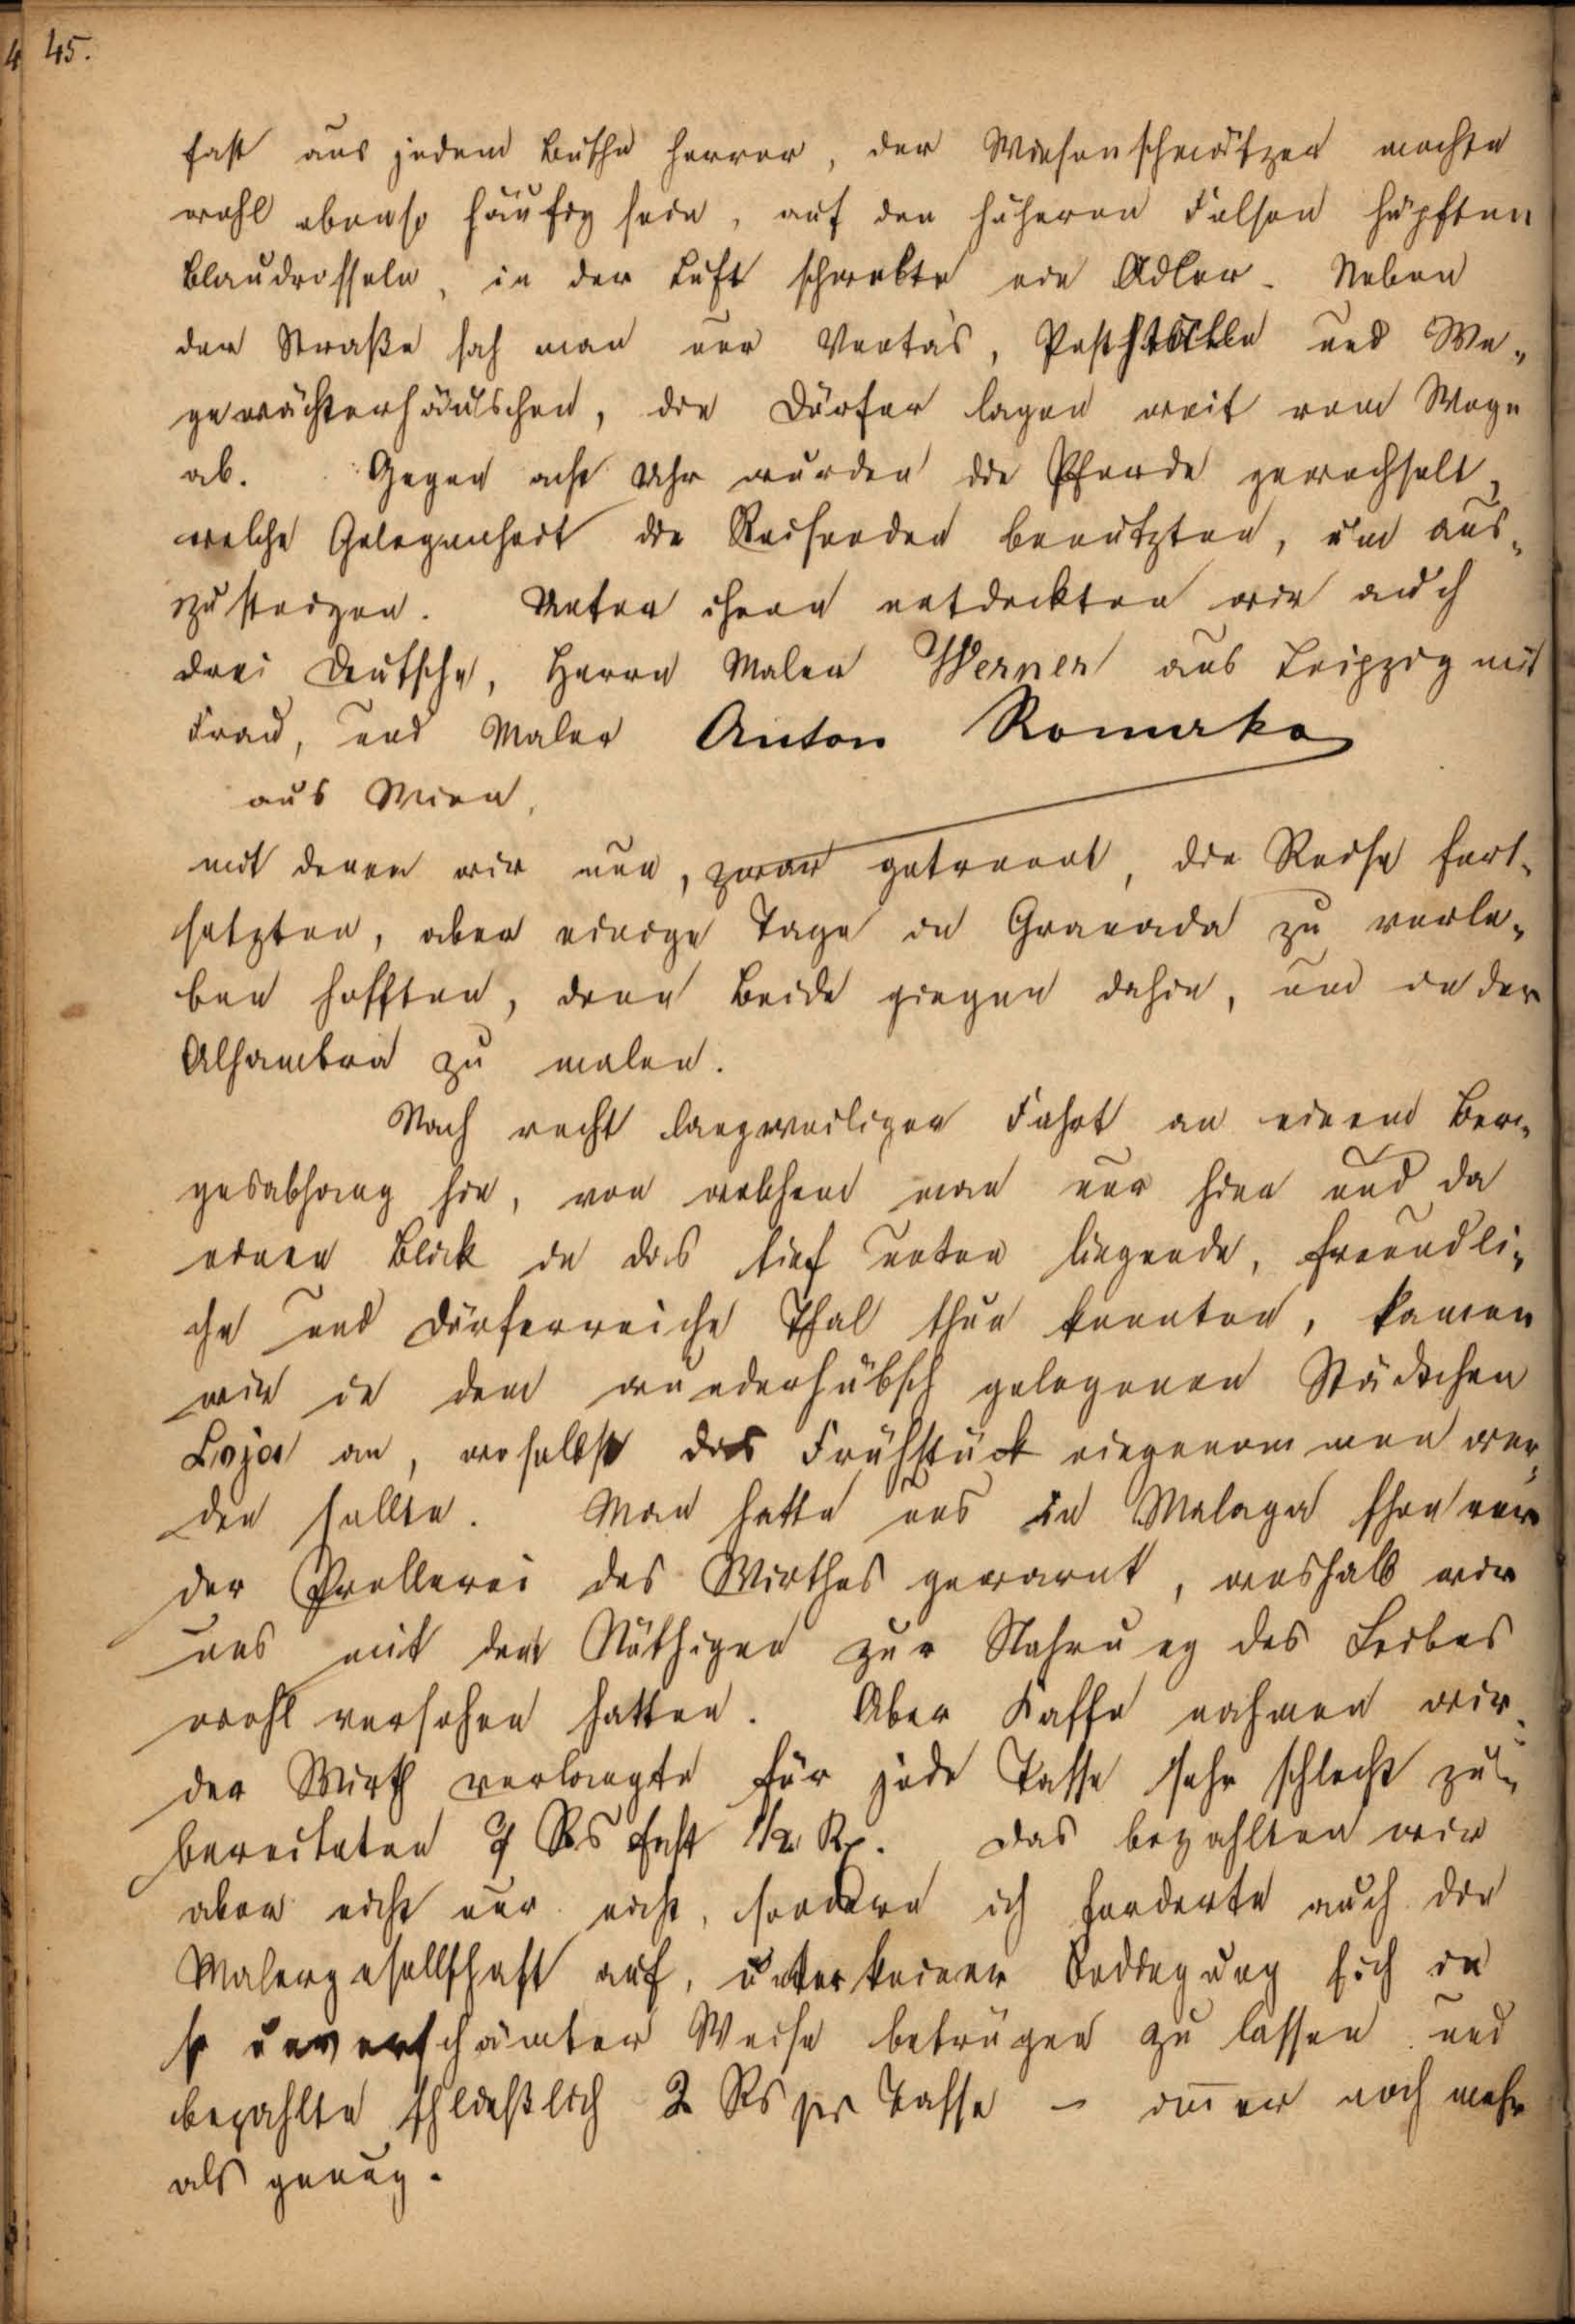 45.
fast aus jedem Busche hervor, der Wiesenschmätzer mochte
wohl ebenso häufig sein, auf den höheren Felsen hüpften
Blaudrosseln, in der Luft schwebte ein Adler. Neben
der Straße sah man nur Ventas, Postställe und We-
gewächterhäuschen, die Dörfer lagen weit vom Wege
ab. Gegen acht Uhr wurden die Pferde gewechselt,
welche Gelegenheit die Reisenden benutzten, um aus-
zusteigen. Unter ihnen entdeckten wir auch
drei Deutsche, Herrn Maler Werner aus Leipzig mit
Frau, und Maler Anton Romako
aus Wien,
mit denen wir nun, zwar getrennt, die Reise fort-
setzten, aber einige Tage in Granada zu verle-
ben hofften, denn Beide giengen dahin, um in der
Alhambra zu malen.
Nach recht langweiliger Fahrt an einem Ber-
gesabhang hin, von welchem man nur hier und da
einen Blick in das tief unten liegende, freundli-
che und dörferreiche Thal thun konnten, kamen
wir in dem wunderhübsch gelegenen Städtchen
Loja an, woselbst das Frühstück eingenommen wer-
den sollte. Man hatte uns in Malaga schon vor
der Prellerei des Wirthes gewarnt, weshalb wir
uns mit dem Nöthigen zur Nahrung des Leibes
wohl versehen hatten. Aber Kaffe nahmen wir.
der Wirth verlangte für jede Tasse sehr schlecht zu-
bereiteten Rs fast 1/2 Rp. Das bezahlten wir
aber nicht nur nicht, sondern ich forderte auch die
Malergesellschaft auf, unter keiner Beddingung sich in
so unverschämter Weise betrügen zu lassen und
bezahlte schließlich 2 Rs per Tasse – immer noch mehr
als genug.